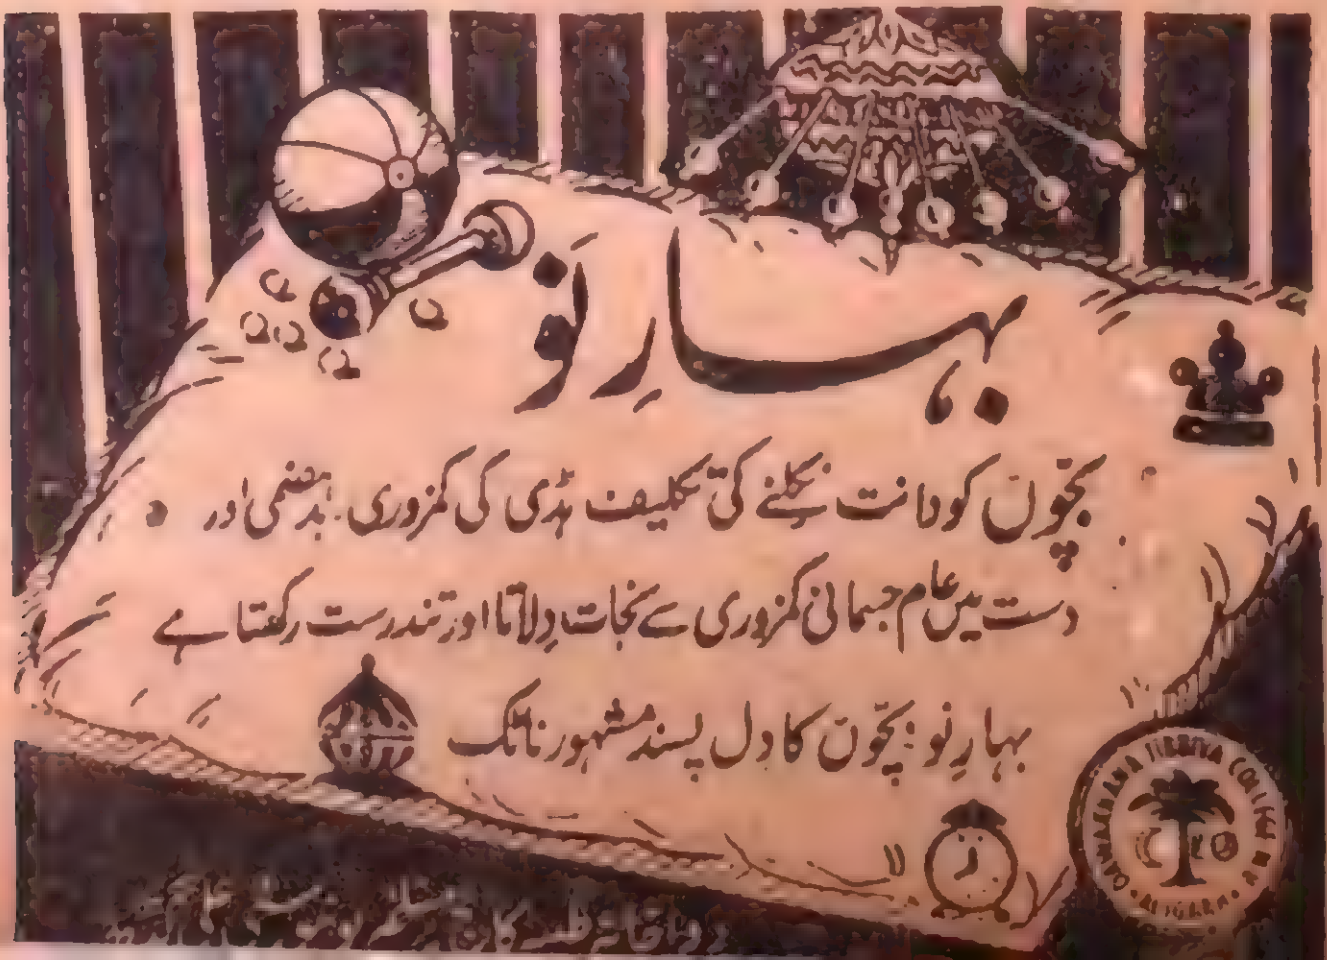 بہارِ نو
بچّوں کو دانت نکلنے کی تکلیف ہڈی کی کمزوری۔ بدہضمی اور
دست میں عام جسمانی کمزوری سے نجات دِلاتا اور تندرست رکھتا ہے
بہارِ نو: بچّوں کا دل پسند مشہور ٹانک
DAWAKHANA TIBBIYA COLLEGE M.U. ALIGARH
دواخانہ طبیہ کالج مسلم یونیورسٹی علی گڑھ